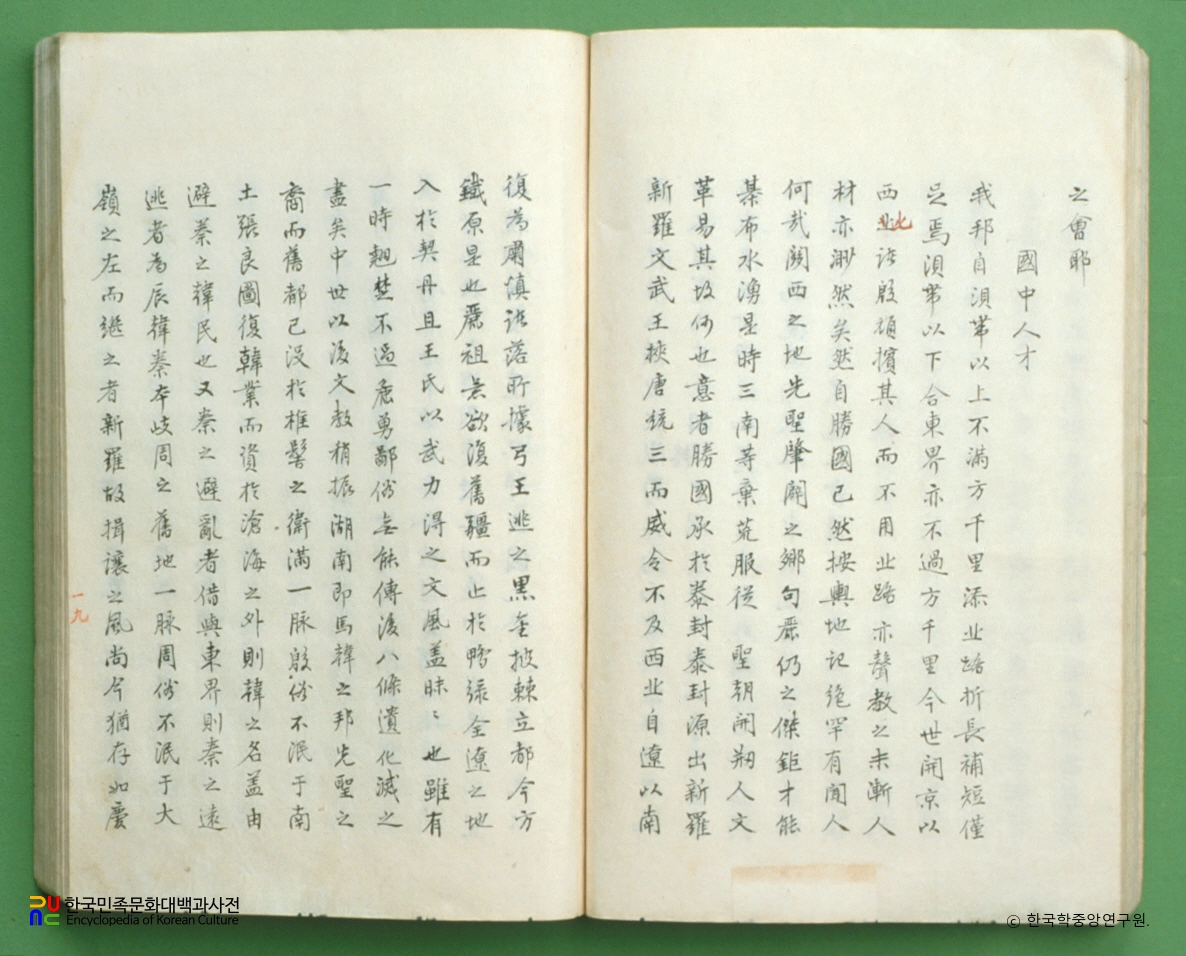 之會耶
國中人才
我邦自浿帶以上不滿方千里添北路折長補短僅
足焉浿帶以下合東界亦不過方千里今世開京以
西北諸殷頑擯其人而不用北路亦聲敎之未漸人
北
材亦渺然矣然自勝國已然按輿地記絶罕有聞人
何哉關西之地先聖肇開之鄉句麗仍之傑鉅才能
棊布水湧是時三南等棄荒服從 聖朝開刱人文
革易其故何也意者勝國承於泰封泰封源出新羅
新羅文武王挾唐統三而威令不及西北自遼以南
復為肅愼諸落所據弓王逃之黑金披棘立都今方
鐵原是也麗祖雖欲復舊疆而止於鴨綠全遼之地
入於契丹且王氏以武力得之文風盖昧〻也雖有
一時翹楚不過麁勇鄙俗無能傳後八條遺化滅之
盡矣中世以後文敎稍振湖南即馬韓之邦先聖之
裔而舊都已沒於椎髻之衛滿一脉殷俗不泯于南
土張良圖復韓業而資於滄海之外則韓之名盖由
避秦之韓民也又秦之避亂者借與東界則秦之遠
逃者為辰韓秦本岐周之舊地一脉周俗不泯于大
嶺之左而繼之者新羅故揖讓之風尚今猶存如慶
一九
한국민족문화대백과사전
Encyclopedia of Korean Culture
© 한국학중앙연구원.